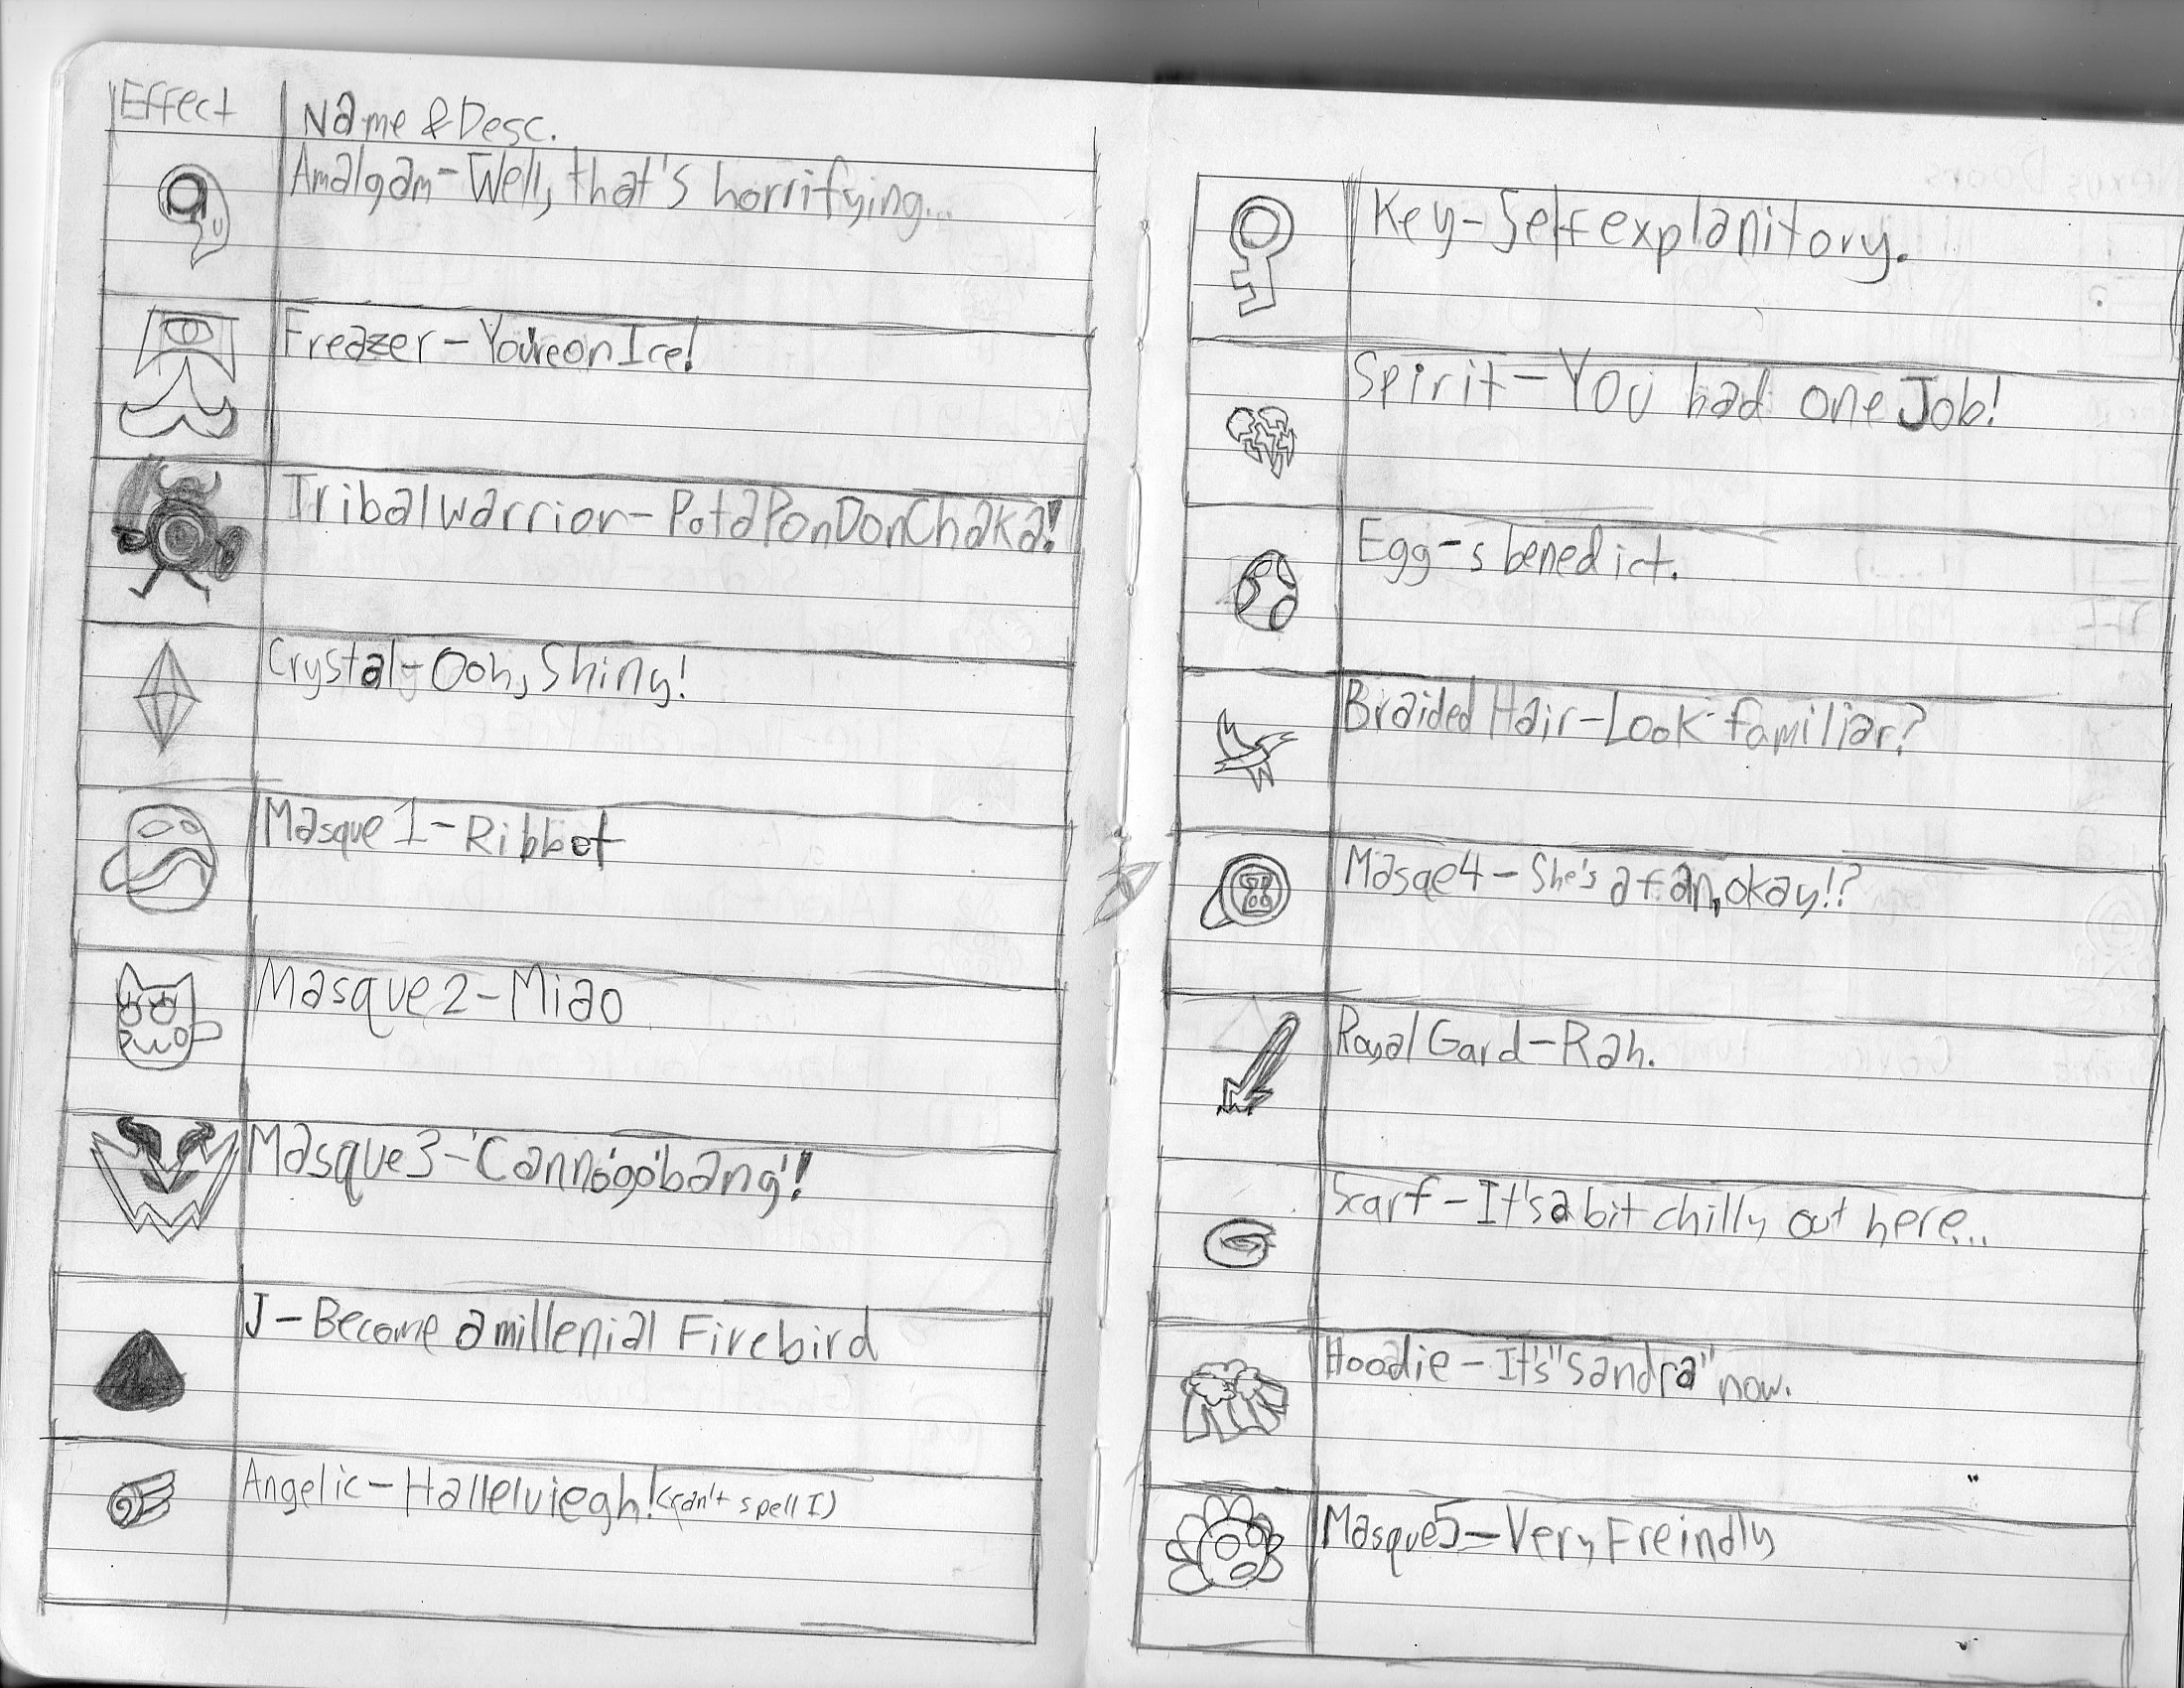 Effect
Name & Desc.
Amalgam-Well, that's horrifying...
Freazer-You're on Ice!
Tribal warrior-PataPonDonChaka!
Crystal-Ooh, Shiny!
Masque 1-Ribbot
Masque 2-Miao
Masque 3-'Cannógó'bang'!
J-Become a millenial Firebird
Angelic-Halleluiegh! (can't spell I)
Key-Self explanitory.
Spirit-You had one Job!
Egg-s benedict.
Braided Hair-Look familiar?
Masqe 4-She's a fan, okay!?
Royal Gard-Rah.
Scarf-It's a bit chilly out here...
Hoodie-It's "Sandra" now.
Masque 5-Very Freindly